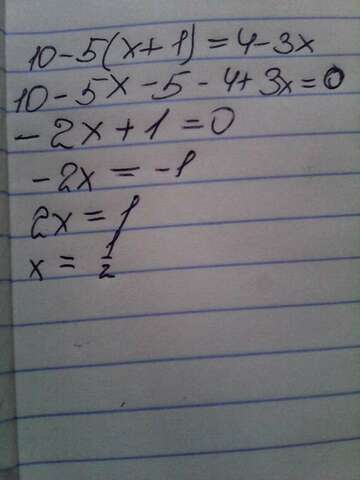 10-5(x+1)=4-3x
10-5x-5-4+3x=0
-2x+1=0
-2x=-1
2x=1
x=1/2